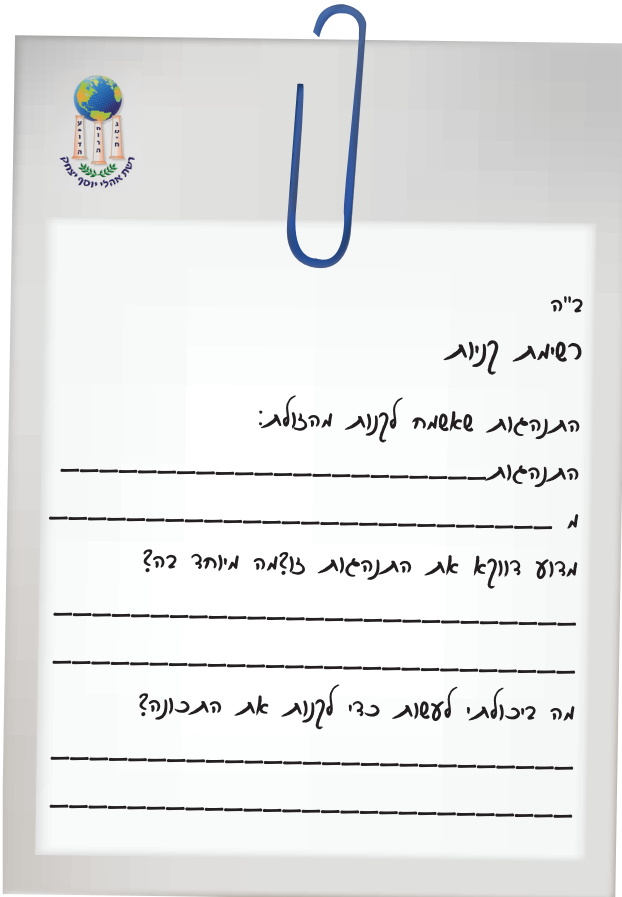 רשת אהלי יוסף יצחק
ב"ה
רשימת קניות
התנהגות שאשמח לקנות מהזולת:
התנהגות______________________
מ __________________________
מדוע דווקא את התנהגות זו?מה מיוחד בה?
___________________________
___________________________
מה ביכולתי לעשות כדי לקנות את התכונה?
___________________________
___________________________